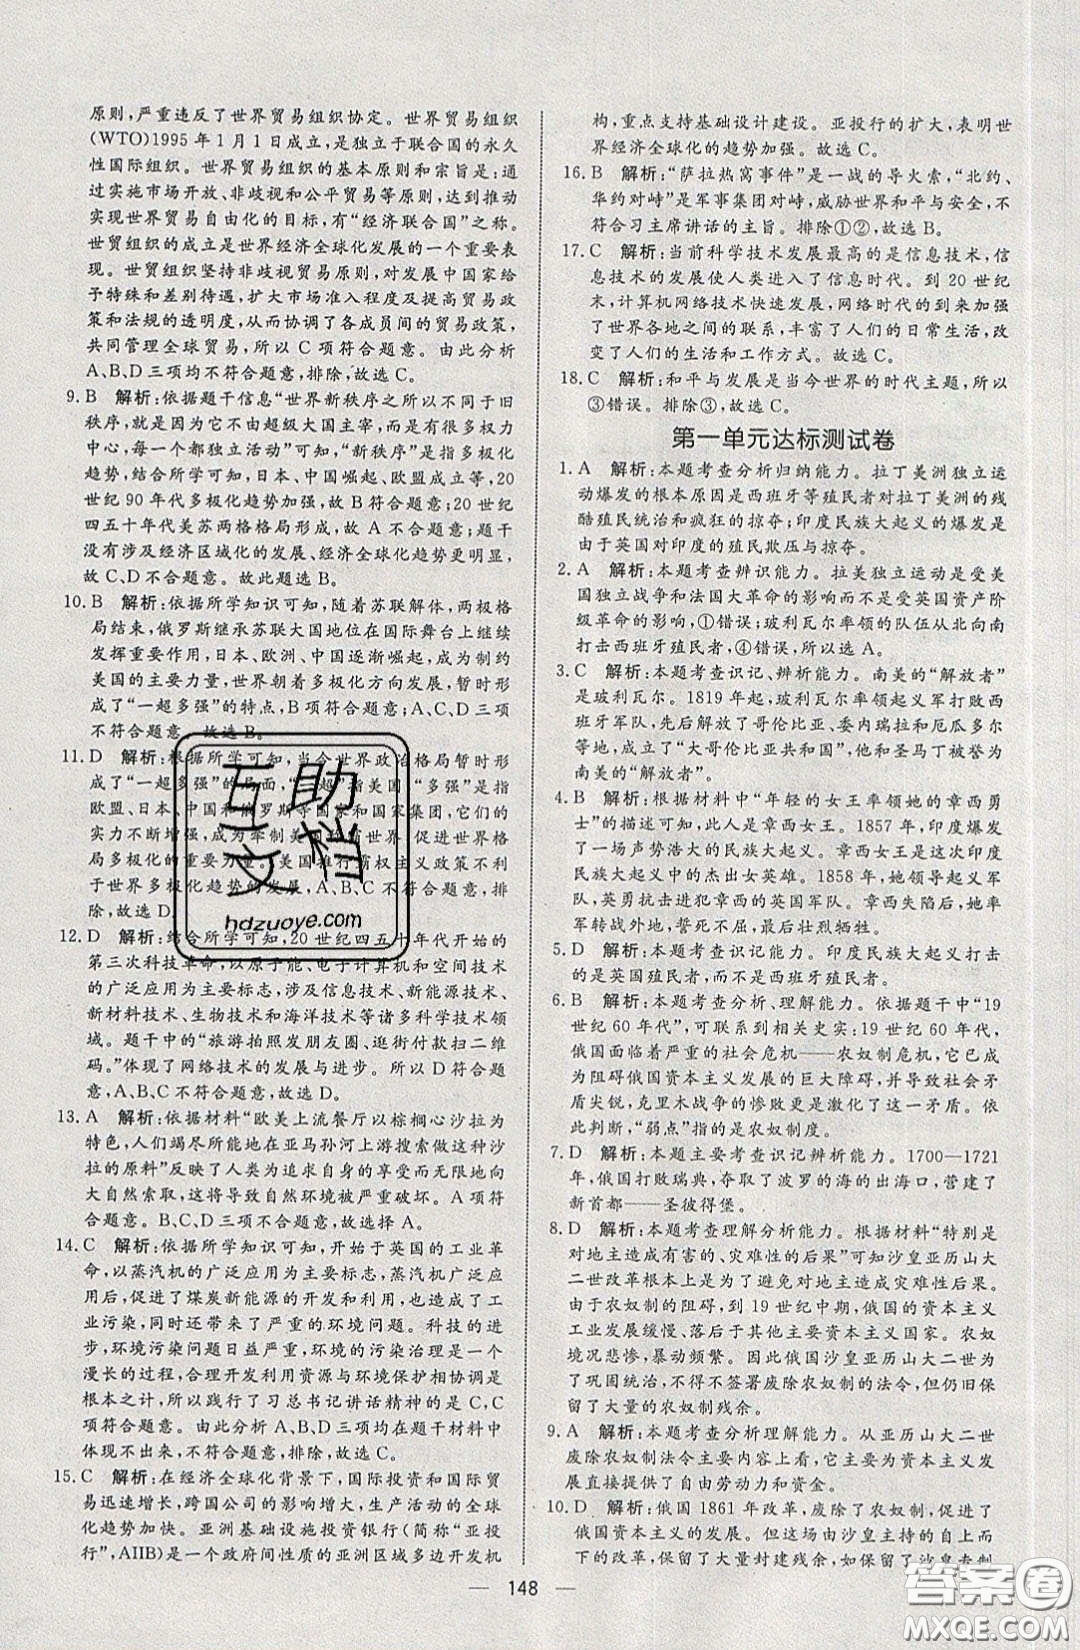 原则,严重违反了世界贸易组织协定。世界贸易组织
(WTO)1995年1月1日成立,是独立于联合国的永久
性国际组织。世界贸易组织的基本原则和宗旨是:通
过实施市场开放、非歧视和公平贸易等原则,达到推动
实现世界贸易自由化的目标,有“经济联合国”之称。
世贸组织的成立是世界经济全球化发展的一个重要表
现。世贸组织坚持非歧视贸易原则,对发展中国家给
予特殊和差别待遇,扩大市场准入程度及提高贸易政
策和法规的透明度,从而协调了各成员间的贸易政策,
共同管理全球贸易,所以C项符合题意。由此分析
A、B、D三项均不符合题意,排除,故选C。
9. B 解析:依据题干信息“世界新秩序之所以不同于旧
秩序,就是因为它不由超级大国主宰,而是有很多权力
中心,每一个都独立活动”可知,“新秩序”是指多极化
趋势,结合所学可知,日本、中国崛起、欧盟成立等,20
世纪90年代多极化趋势加强,故B符合题意。20世纪
四五十年代美苏两极格局形成,故A不合题意;题干
没有涉及经济区域化的发展、经济全球化趋势更明显,
故C、D不合题意。故此题选B。
10. B 解析:依据所学知识可知,随着苏联解体,两极格
局结束,俄罗斯继承苏联大国地位在国际舞台上继续
发挥重要作用,日本、欧洲、中国逐渐崛起,成为制约
美国的主要力量,世界朝着多极化方向发展,暂时形
成了“一超多强”的特点,B项符合题意;A、C、D三项
不符合题意,故选B。
11. D 解析:根据所学可知,当今世界政治格局暂时形
成了“一超多强”的局面,“一超”指美国,“多强”是指
欧盟、日本、中国和俄罗斯等国家和国家集团,它们的
实力不断增强,成为牵制美国 世界、促进世界格
局多极化的重要力量。美国推行霸权主义政策不利于
世界多极化趋势的发展,A、B、C三项不符合题意,排
除,故选D。
12. D 解析:结合所学可知,20世纪四五十年代开始的
第三次科技革命,以原子能、电子计算机和空间技术
的广泛应用为主要标志,涉及信息技术、新能源技术、
新材料技术、生物技术和海洋技术等诸多高科技技术
领域。题干中的“旅游拍照发朋友圈、逛街付款扫二维
码。”体现了网络技术的发展与进步。所以D符合题
意;A、B、C不符合题意,故选D。
13. A 解析:依据材料“欧美上流餐厅以棕榈心沙拉为
特色,人们竭尽所能地在亚马孙河上游搜索做这种沙
拉的原料”反映了人类为追求自身的享受而无限地向
大自然索取,导致自然环境被严重破坏。A项符合题
意。B、C、D三项不合题意,故选择A。
14. C 解析:依据所学知识可知,开始于英国的工业革
命,以蒸汽机的广泛应用为主要标志,蒸汽机的广泛应
用后,促进了煤炭新能源的开发和利用,造成了严重的
工业污染,同时还带来了严重的环境问题。科技的进
步,环境污染问题日益严重,环境的污染治理是一个
漫长的过程,合理开发利用资源与环境保护相协调是
根本之计,所以践行了习总书记讲话精神的是C,C
项符合题意。由此分析A、B、D三项均在题干材料中
体现不出来,不符合题意,排除,故选C。
15. C 解析:在经济全球化背景下,国际投资和国际贸
易迅速增长,跨国公司的影响增大,生产活动的全球
化趋势加快。亚洲基础设施投资银行(简称“亚投
行”,AIIB)是一个政府间性质的亚洲区域多边开发机
构,重点支持基础设计建设。亚投行的扩大,表明世
界经济全球化的趋势加强。故选C。
16. B 解析:“萨拉热窝事件”是一战的导火索,“北约、
华约对峙”是军事集团对峙,威胁世界和平与安全,不
符合习主席讲话的主旨。排除①②,故选B。
17. C 解析:当前科学技术发展最高的是信息技术,信
息技术的发展使人类进入了信息时代。到20世纪
末,计算机网络技术快速发展,网络时代的到来加强
了世界各地之间的联系,丰富了人们的日常生活,改
变了人们的生活和工作方式。故选C。
18. C 解析:和平与发展是当今世界的时代主题,所以
③错误。排除③,故选C。
第一单元达标测试卷
1. A 解析:本题考查分析归纳能力。拉丁美洲独立运
动爆发的根本原因是西班牙等殖民者对拉丁美洲的残
酷殖民统治和疯狂的掠夺;印度民族大起义的爆发是
由于英国对印度的殖民欺压与掠夺。
2. A 解析:本题考查辨识能力。拉美独立运动是受美
国独立战争和法国大革命的影响,而不是受英国资产阶
级革命的影响,①错误;玻利瓦尔率领的队伍从北向南
打击西班牙殖民者,④错误,所以选A。
3. C 解析:本题考查识记、辨析能力。南美的“解放者”
是玻利瓦尔。1819年起,玻利瓦尔率领起义军打败西
班牙军队,先后解放了哥伦比亚、委内瑞拉和厄瓜多尔
等地,成立了“大哥伦比亚共和国”,他和圣马丁被誉为
南美的“解放者”。
4. B 解析:根据材料中“年轻的女王率领她的章西勇
士”的描述可知,此人是章西女王。1857年,印度爆发
了一场声势浩大的民族大起义。章西女王是这次印度
民族大起义中的杰出女英雄。1858年,她领导起义军
队,英勇抗击进犯章西的英国军队。章西失陷后,她率
军转战外地,誓死不屈,最后壮烈牺牲。
5. D 解析:本题考查识记能力。印度民族大起义打击
的是英国殖民者,而不是西班牙殖民者。
6. B 解析:本题考查分析、理解能力。依据题干中“19
世纪60年代”,可联系到相关史实:19世纪60年代,
俄国面临着严重的社会危机——农奴制危机,它已成
为阻碍俄国资本主义发展的巨大障碍,并导致社会矛
盾尖锐,克里木战争的惨败更是激化了这一矛盾。依
此判断,“弱点”指的是农奴制度。
7. D 解析:本题主要考查识记辨析能力。1700—1721
年,俄国打败瑞典,夺取了波罗的海的出海口,营建了
新首都——圣彼得堡。
8. D 解析:本题考查理解分析能力。根据材料“特别是
对地主造成有害的、灾难性的后果”可知沙皇亚历山大
二世改革根本上是为了避免对地主造成灾难性后果。
由于农奴制的阻碍,到19世纪中期,俄国的资本主义
工业发展缓慢、落后于其他主要资本主义国家。农奴
境况悲惨,暴动频繁。因此俄国沙皇亚历山大二世为
了巩固统治,不得不签署废除农奴制的法令,但仍然保
留了大量的农奴制残余。
9. A 解析:本题考查分析理解能力。从亚历山大二世
废除农奴制法令主要内容上看,它为资本主义经济发
展直接提供了自由劳动力和资金。
10. D 解析:俄国1861年改革,废除了农奴制,促进了
俄国资本主义的发展。但这场由沙皇主持的自上而
下的改革,保留了大量封建残余,如保留了沙皇专制
— 148 —
互助
文档
hdzuoye.com
答案圈
MXQE.COM